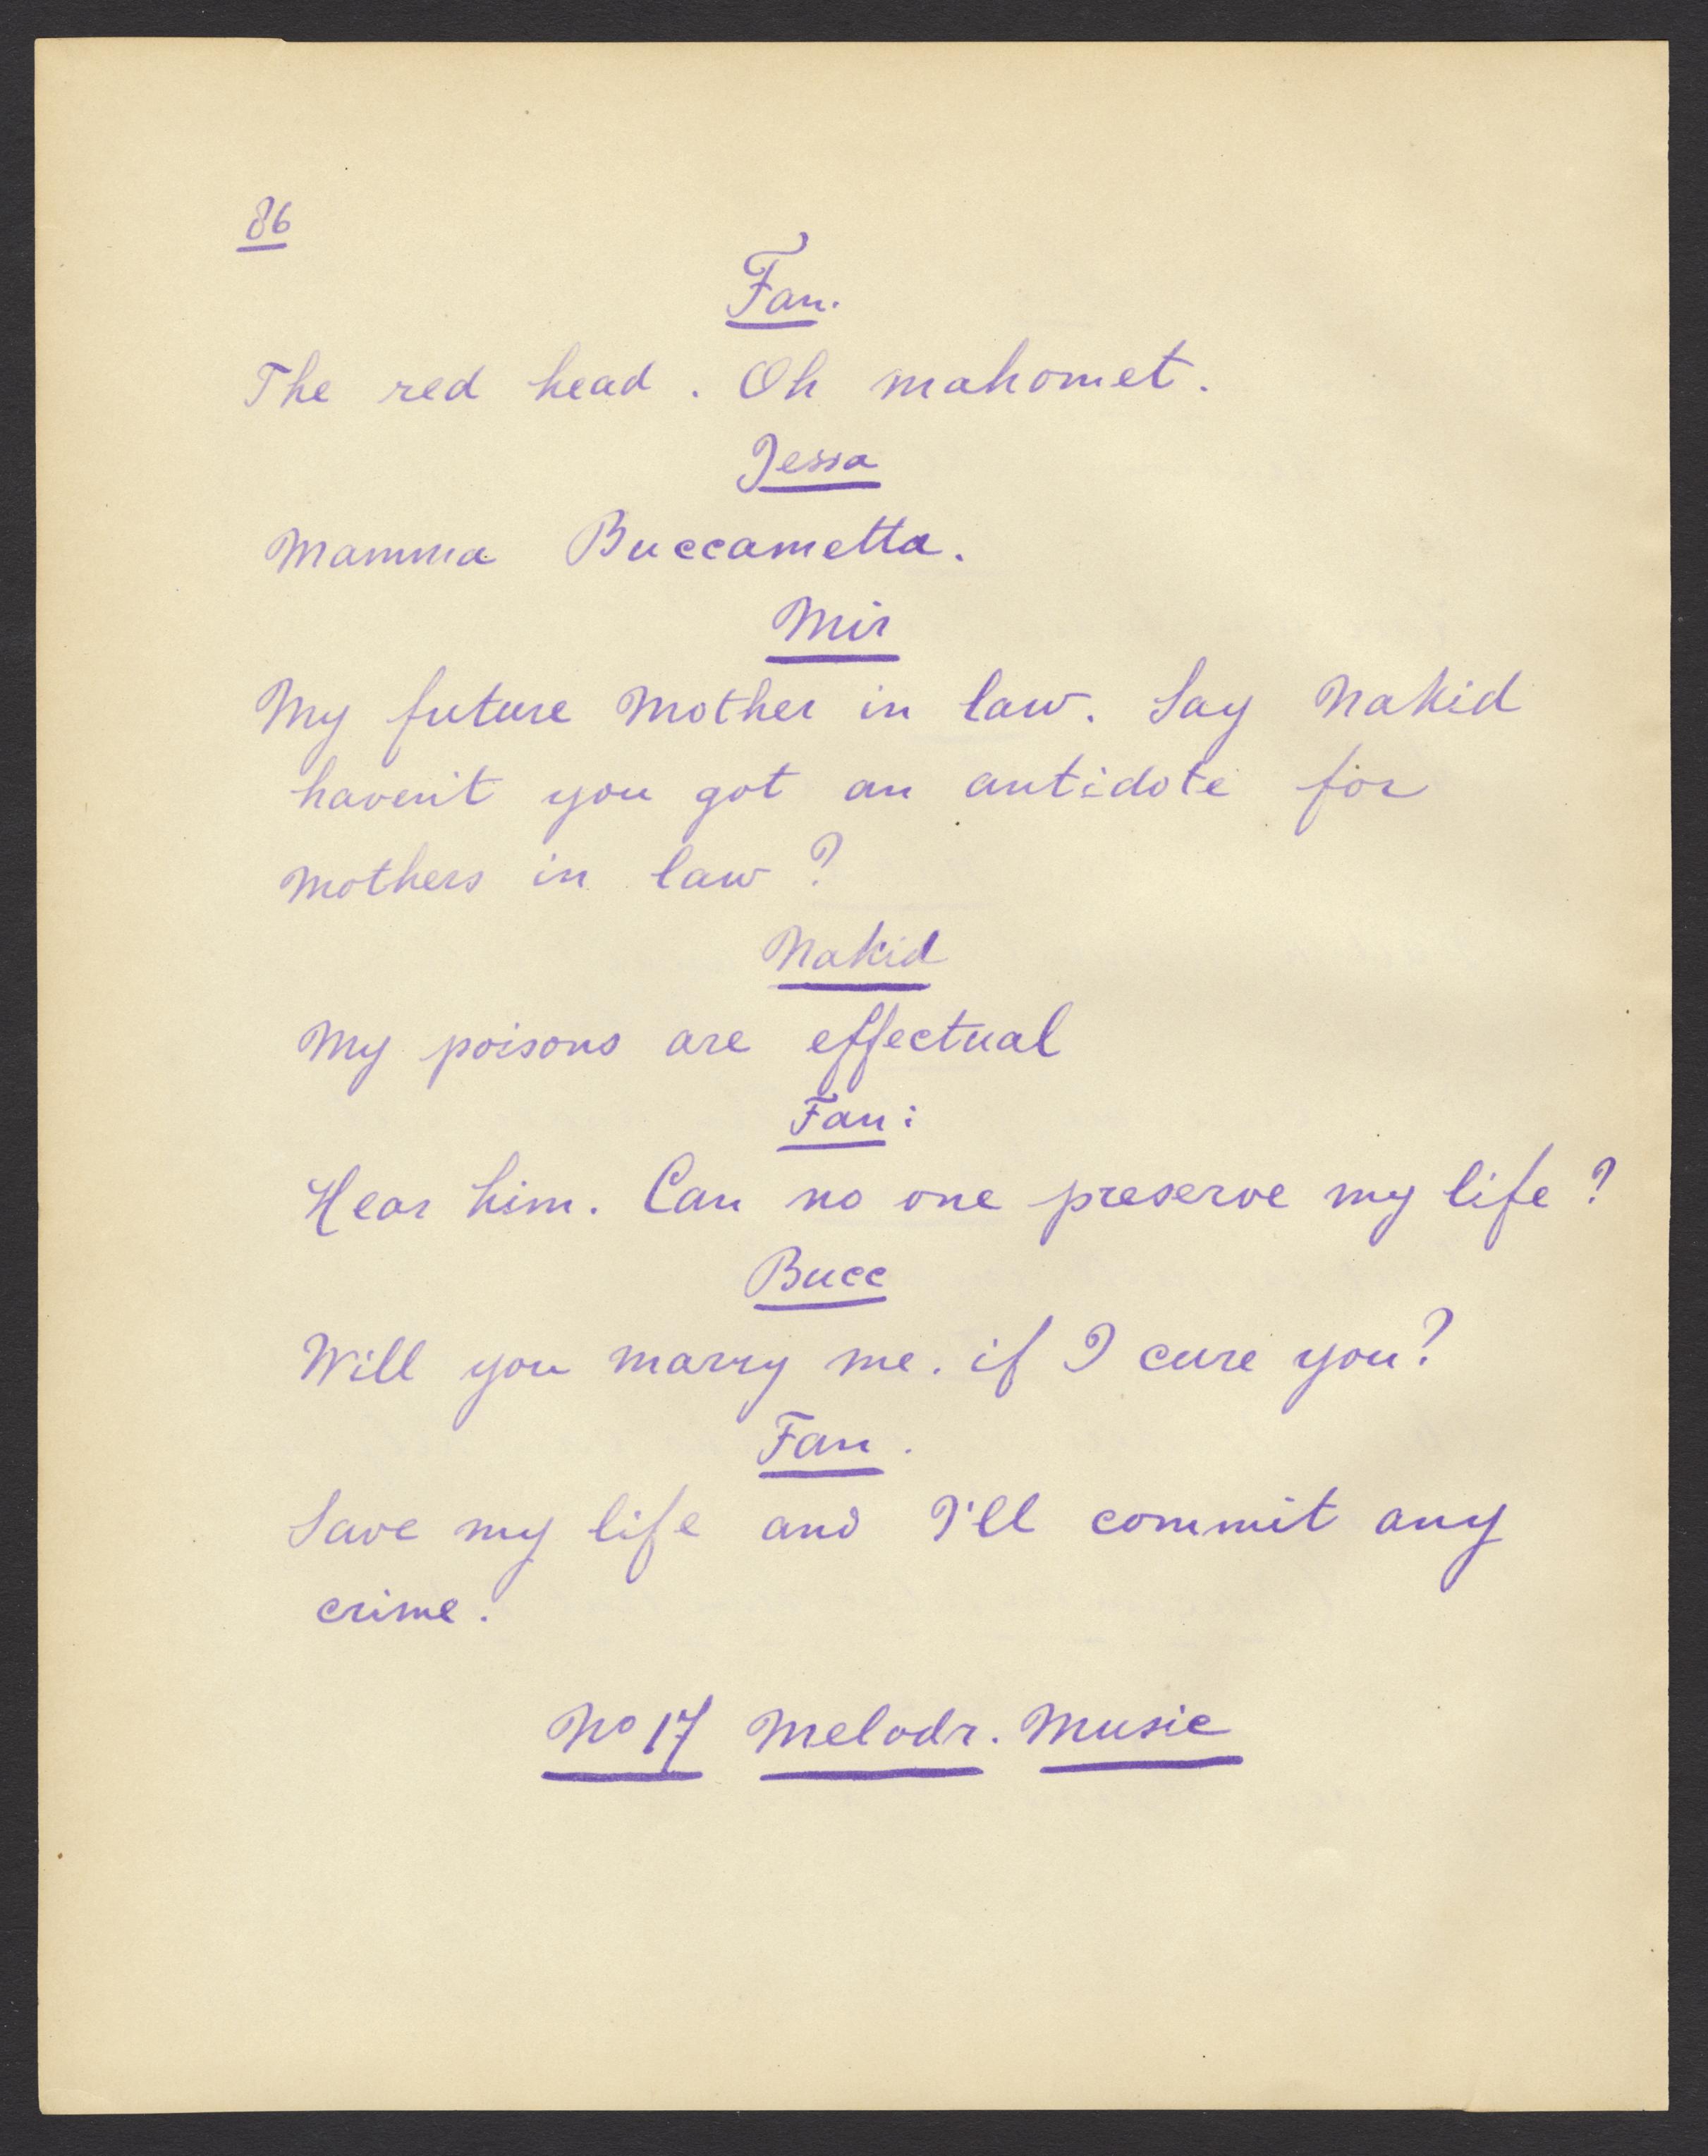 86
Fan.
The red head. Oh mahomet.
Jessa
Mamma Buccametta.
Mir
My future Mother in law. Say Nakid
haven't you got an antidote for
Mothers in law?
Nakid
My poisons are effectual
Fan:
Hear him. Can no one preserve my life?
Bucc
Will you marry me. if I cure you?
Fan.
Save my life and I'll commit any
crime.
No 17 Melodr. Music